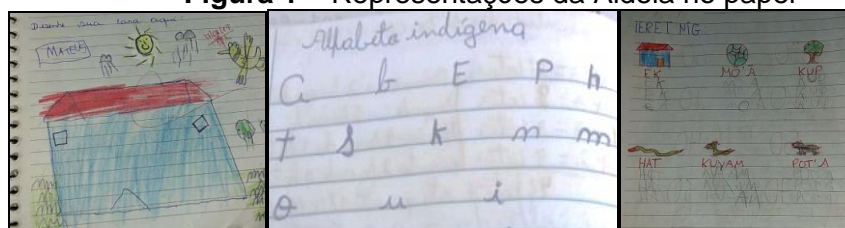 Figura 1 – Representações da Aldeia no papel
Desenhe sua casa aqui.
MATEUS
Alfabeto indígena
a b E P h
t s k n m
o u i
IERET MIG
EK MO'Ã KUP
HAT KUYAM POT'A